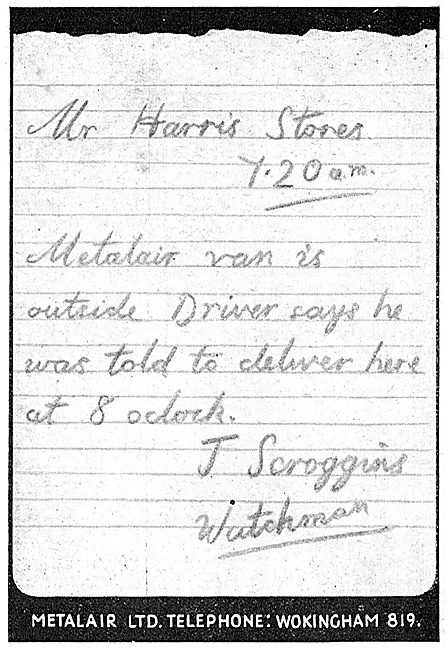 Mr Harris Stores
7.20 a.m.
Metalair van is
outside Driver says he
was told to deliver here
at 8 oclock.
J Scroggins
Watchman
METALAIR LTD. TELEPHONE: WOKINGHAM 819.